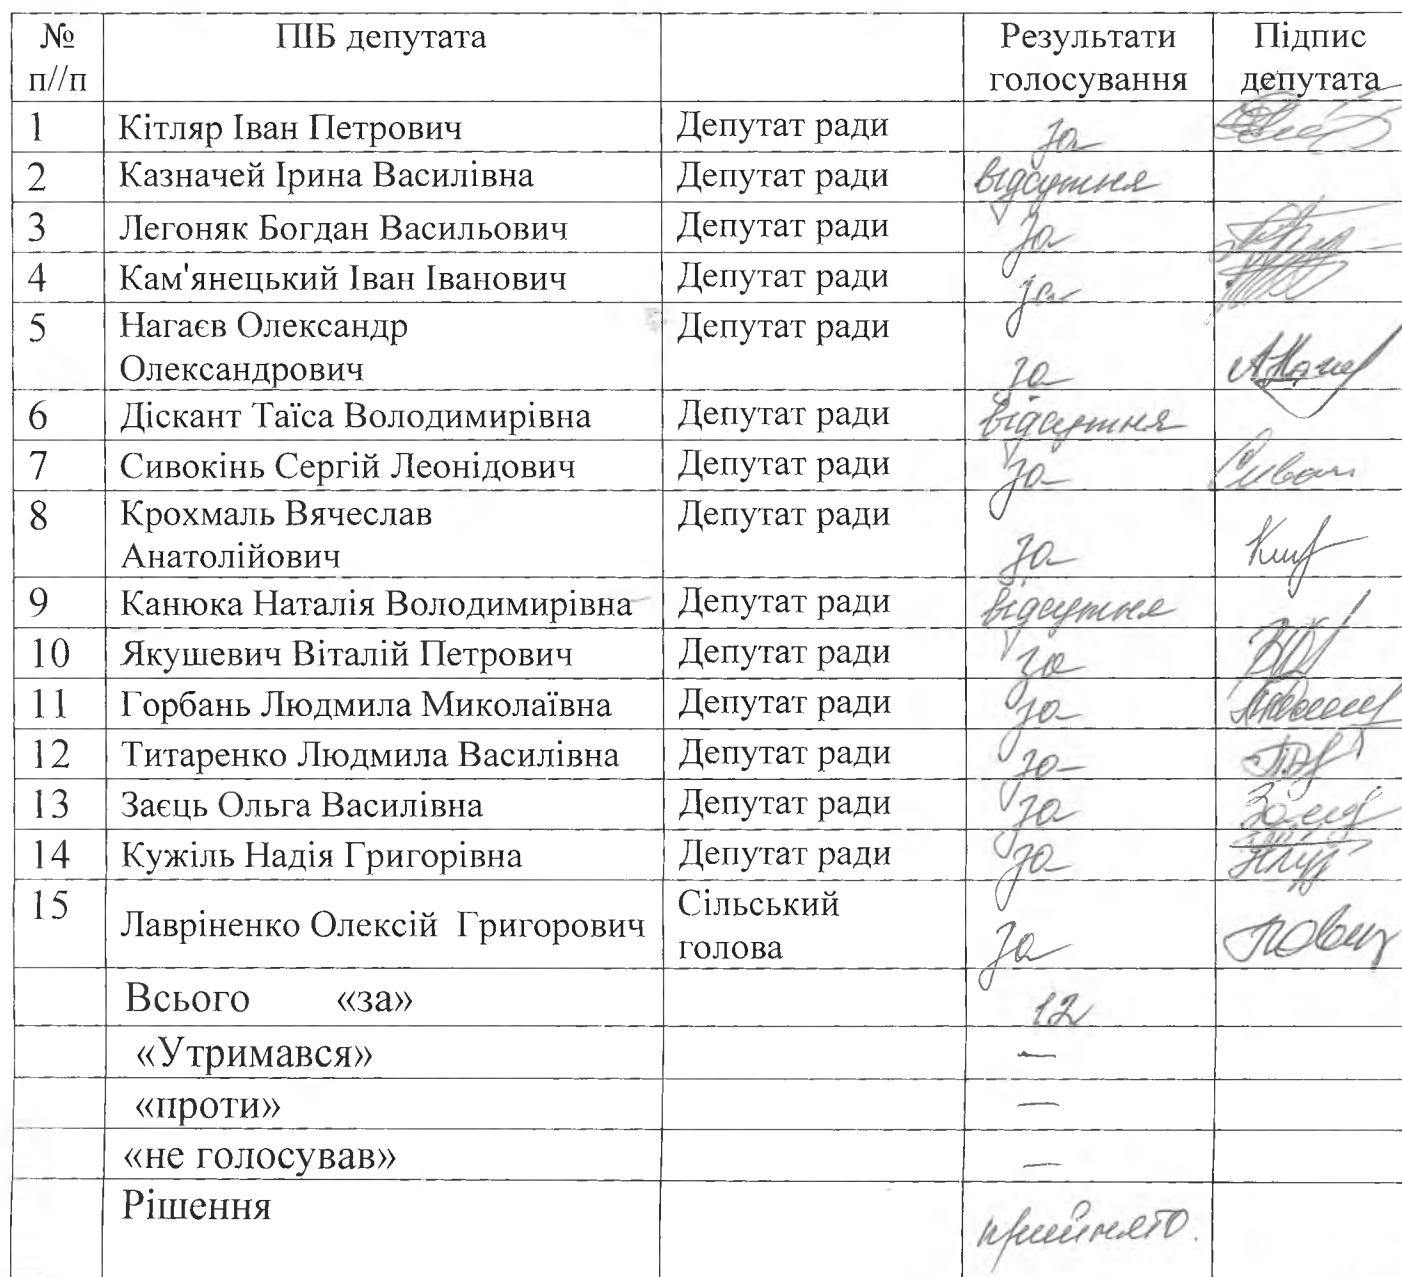 № ПІБ депутата Результати Підпис
п//п голосування депутата
1 Кітляр Іван Петрович Депутат ради за
2 Казначей Ірина Василівна Депутат ради відсутня
3 Легоняк Богдан Васильович Депутат ради за
4 Кам'янецький Іван Іванович Депутат ради за
5 Нагаєв Олександр Депутат ради
Олександрович за
6 Діскант Таїса Володимирівна Депутат ради відсутня
7 Сивокінь Сергій Леонідович Депутат ради за
8 Крохмаль Вячеслав Депутат ради
Анатолійович за
9 Канюка Наталія Володимирівна Депутат ради відсутня
10 Якушевич Віталій Петрович Депутат ради за
11 Горбань Людмила Миколаївна Депутат ради за
12 Титаренко Людмила Василівна Депутат ради за
13 Заєць Ольга Василівна Депутат ради за
14 Кужіль Надія Григорівна Депутат ради за
15 Сільський
Лавріненко Олексій Григорович голова за
Всього «за» 12
«Утримався» —
«проти» —
«не голосував» —
Рішення прийнято.